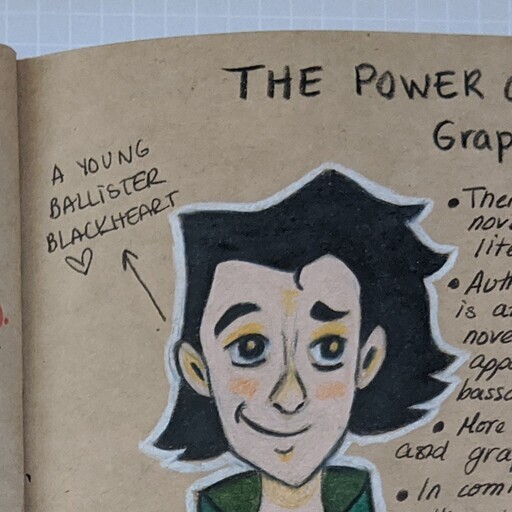 THE POWER
Grap
A YOUNG
BALLISTER
BLACKHEART
• Ther
nov
lite
• Auth
is a
nove
app
basso
• More
and gra
• In com